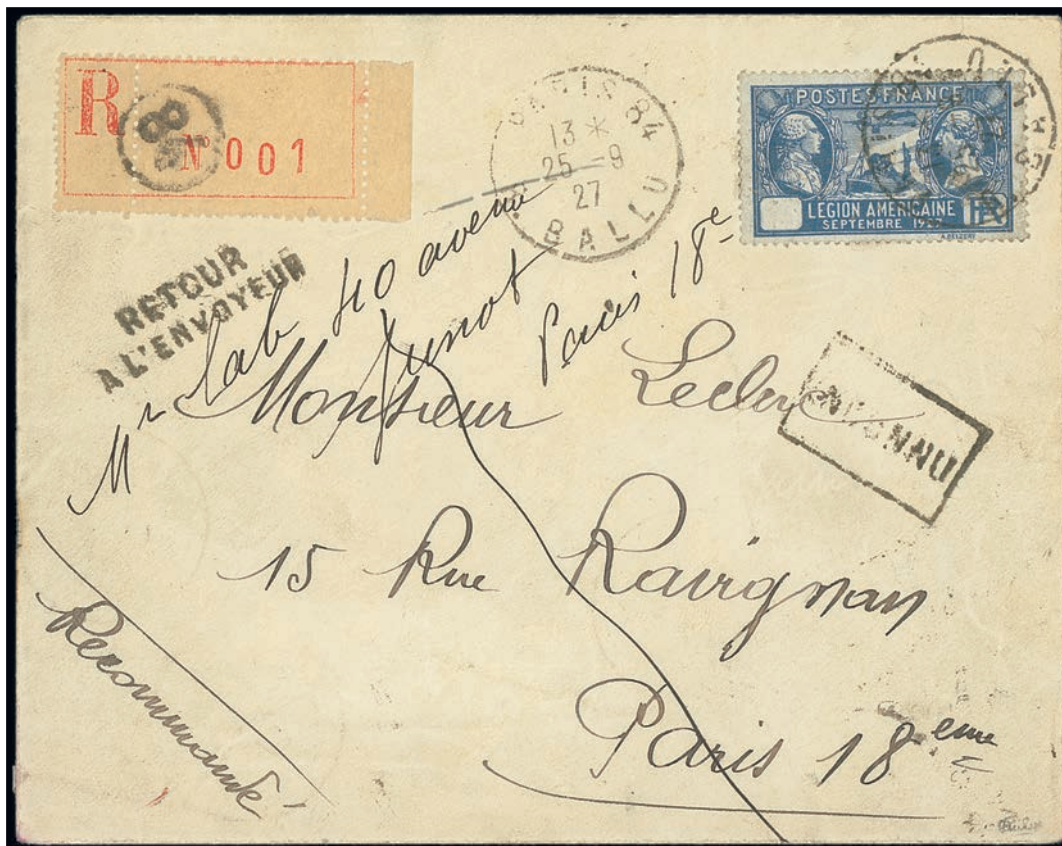 R
N° 001
PARIS 84
13 *
25 -9
27
BALLU
POSTES FRANCE
LEGION AMÉRICAINE
SEPTEMBRE
RETOUR
A L'ENVOYEUR
Mr Lab 40 avenue
Junot
Paris 18e
Monsieur Leclerc
INCONNU
15 Rue Ravignan
Paris 18eme
Recommandé